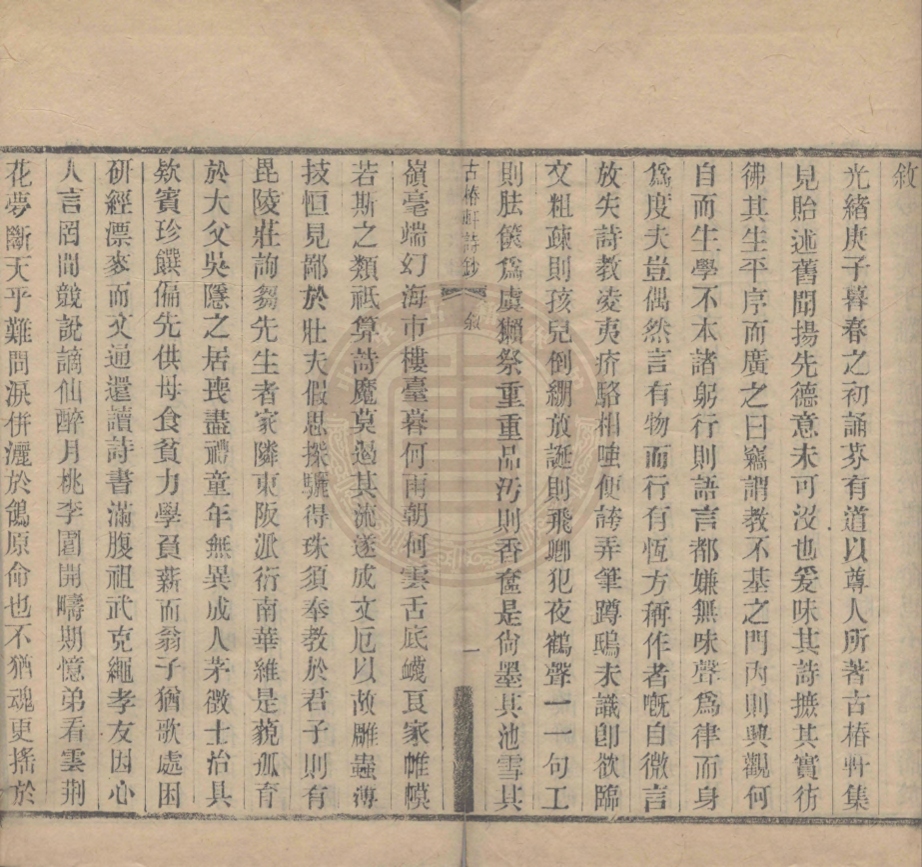 敘
光緒庚子暮春之初誦芬有道以尊人所著古椿軒集
見貽述舊聞揚先德意未可沒也爰味其詩摭其實彷
彿其生平序而廣之曰竊謂教不基之門內則興觀何
自而生學不本諸躬行則語言都嫌無味聲爲律而身
爲度夫豈偶然言有物而行有恆方稱作者嘅自微言
放失詩教凌夷疥駱相嗤便誇弄筆蹲鴟未識卽欲臨
文粗疎則孩兒倒繃放誕則飛卿犯夜鶴聲一一句工
則胠篋爲虞獺祭重重品汚則香奩是尙墨其池雪其
古椿軒詩鈔
敘
一
嶺毫端幻海市樓臺暮何雨朝何雲舌底蠛艮家帷幙
若斯之類祇算詩魔莫遏其流遂成文厄以故雕蟲薄
技恒見鄙於壯夫假思探驪得珠須奉教於君子則有
毘陵莊詢芻先生者家隣東阪派衍南華維是藐孤育
於大父吳隱之居喪盡禮童年無異成人茅徵士治具
欵賓珍饌偏先供母食貧力學負薪而翁子猶歌處困
研經漂麥而文通還讀詩書滿腹祖武克繩孝友因心
人言罔間競說謫仙醉月桃李園開疇期憶弟看雲荆
花夢斷天乎難問淚併灑於鴒原命也不猶魂更搖於